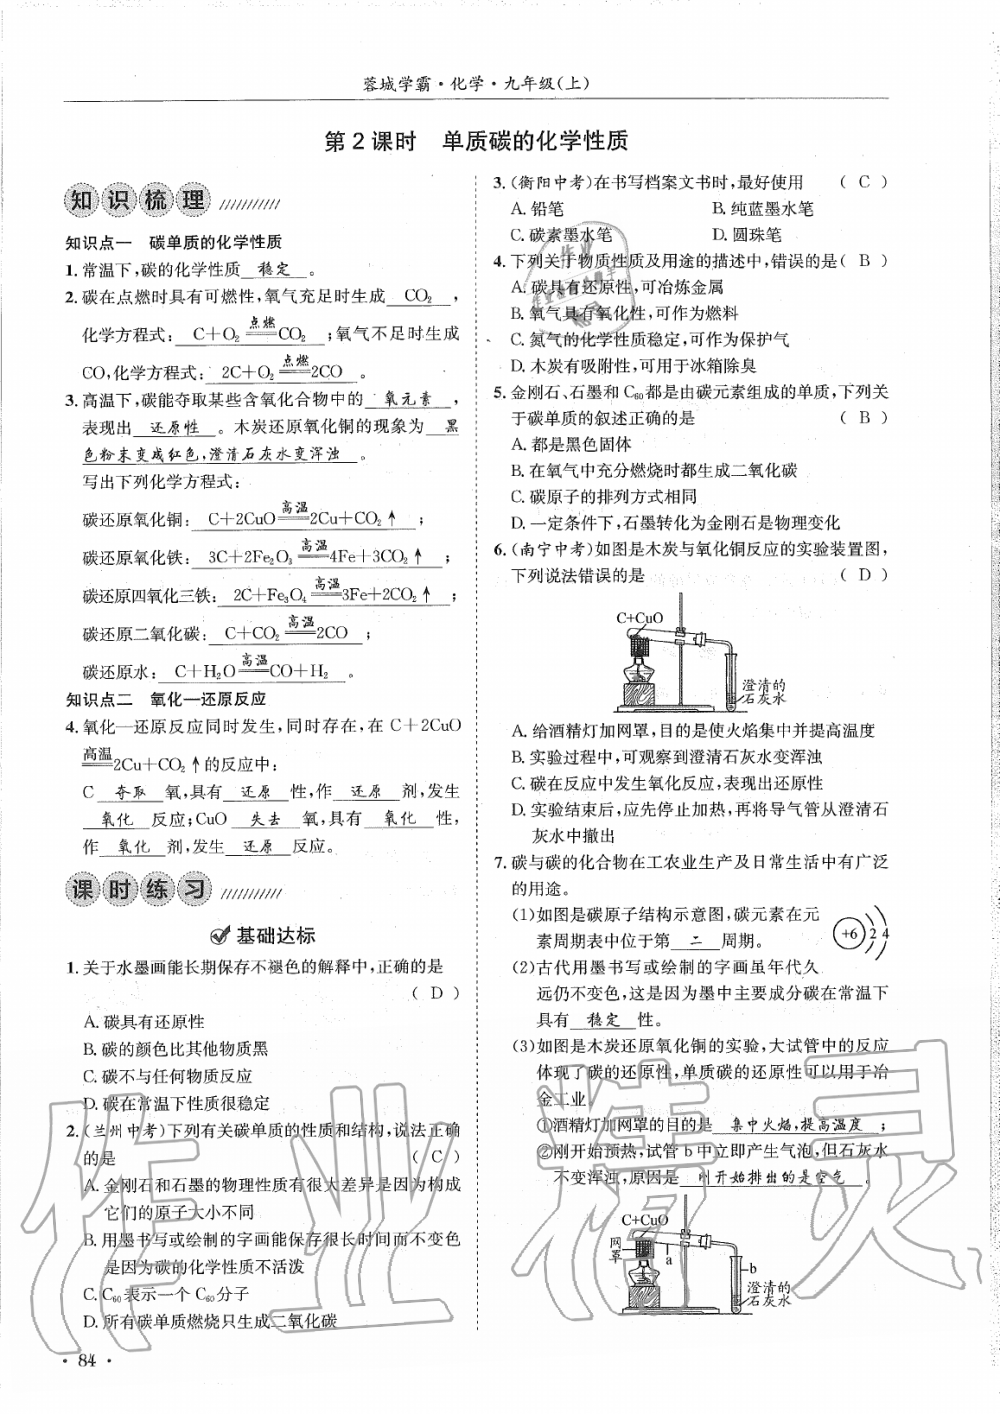 蓉城学霸·化学·九年级(上)
第2课时 单质碳的化学性质
知识梳理
知识点一 碳单质的化学性质
1. 常温下,碳的化学性质 稳定 。
2. 碳在点燃时具有可燃性,氧气充足时生成 CO₂ ,
化学方程式: C+O₂ 点燃══ CO₂ ;氧气不足时生成
CO,化学方程式: 2C+O₂ 点燃══ 2CO 。
3. 高温下,碳能夺取某些含氧化合物中的 氧元素 ,
表现出 还原性 。木炭还原氧化铜的现象为 黑
色粉末变成红色,澄清石灰水变浑浊 。
写出下列化学方程式:
碳还原氧化铜: C+2CuO 高温══ 2Cu+CO₂↑ ;
碳还原氧化铁: 3C+2Fe₂O₃ 高温══ 4Fe+3CO₂↑ ;
碳还原四氧化三铁: 2C+Fe₃O₄ 高温══ 3Fe+2CO₂↑ ;
碳还原二氧化碳: C+CO₂ 高温══ 2CO ;
碳还原水: C+H₂O 高温══ CO+H₂ 。
知识点二 氧化—还原反应
4. 氧化—还原反应同时发生,同时存在,在 C+2CuO
高温══ 2Cu+CO₂↑的反应中:
C 夺取 氧,具有 还原 性,作 还原 剂,发生
氧化 反应;CuO 失去 氧,具有 氧化 性,
作 氧化 剂,发生 还原 反应。
课时练习
基础达标
1. 关于水墨画能长期保存不褪色的解释中,正确的是
( D )
A. 碳具有还原性
B. 碳的颜色比其他物质黑
C. 碳不与任何物质反应
D. 碳在常温下性质很稳定
2. (兰州中考)下列有关碳单质的性质和结构,说法正确
的是 ( C )
A. 金刚石和石墨的物理性质有很大差异是因为构成
它们的原子大小不同
B. 用墨书写或绘制的字画能保存很长时间而不变色
是因为碳的化学性质不活泼
C. C₆₀表示一个 C₆₀分子
D. 所有碳单质燃烧只生成二氧化碳
· 84 ·
3. (衡阳中考)在书写档案文书时,最好使用 ( C )
A. 铅笔 B. 纯蓝墨水笔
C. 碳素墨水笔 D. 圆珠笔
4. 下列关于物质性质及用途的描述中,错误的是( B )
A. 碳具有还原性,可冶炼金属
B. 氧气具有氧化性,可作为燃料
C. 氮气的化学性质稳定,可作为保护气
D. 木炭有吸附性,可用于冰箱除臭
5. 金刚石、石墨和 C₆₀都是由碳元素组成的单质,下列关
于碳单质的叙述正确的是 ( B )
A. 都是黑色固体
B. 在氧气中充分燃烧时都生成二氧化碳
C. 碳原子的排列方式相同
D. 一定条件下,石墨转化为金刚石是物理变化
6. (南宁中考)如图是木炭与氧化铜反应的实验装置图,
下列说法错误的是 ( D )
C+CuO
澄清的
石灰水
A. 给酒精灯加网罩,目的是使火焰集中并提高温度
B. 实验过程中,可观察到澄清石灰水变浑浊
C. 碳在反应中发生氧化反应,表现出还原性
D. 实验结束后,应先停止加热,再将导气管从澄清石
灰水中撤出
7. 碳与碳的化合物在工农业生产及日常生活中有广泛
的用途。
(1)如图是碳原子结构示意图,碳元素在元
素周期表中位于第 二 周期。
+6 2 4
(2)古代用墨书写或绘制的字画虽年代久
远仍不变色,这是因为墨中主要成分碳在常温下
具有 稳定 性。
(3)如图是木炭还原氧化铜的实验,大试管中的反应
体现了碳的还原性,单质碳的还原性可以用于冶
金工业。
①酒精灯加网罩的目的是 集中火焰,提高温度 ;
②刚开始预热,试管 b 中立即产生气泡,但石灰水
不变浑浊,原因是 刚开始排出的是空气 。
C+CuO
网罩
a
b
澄清的
石灰水
作业精灵